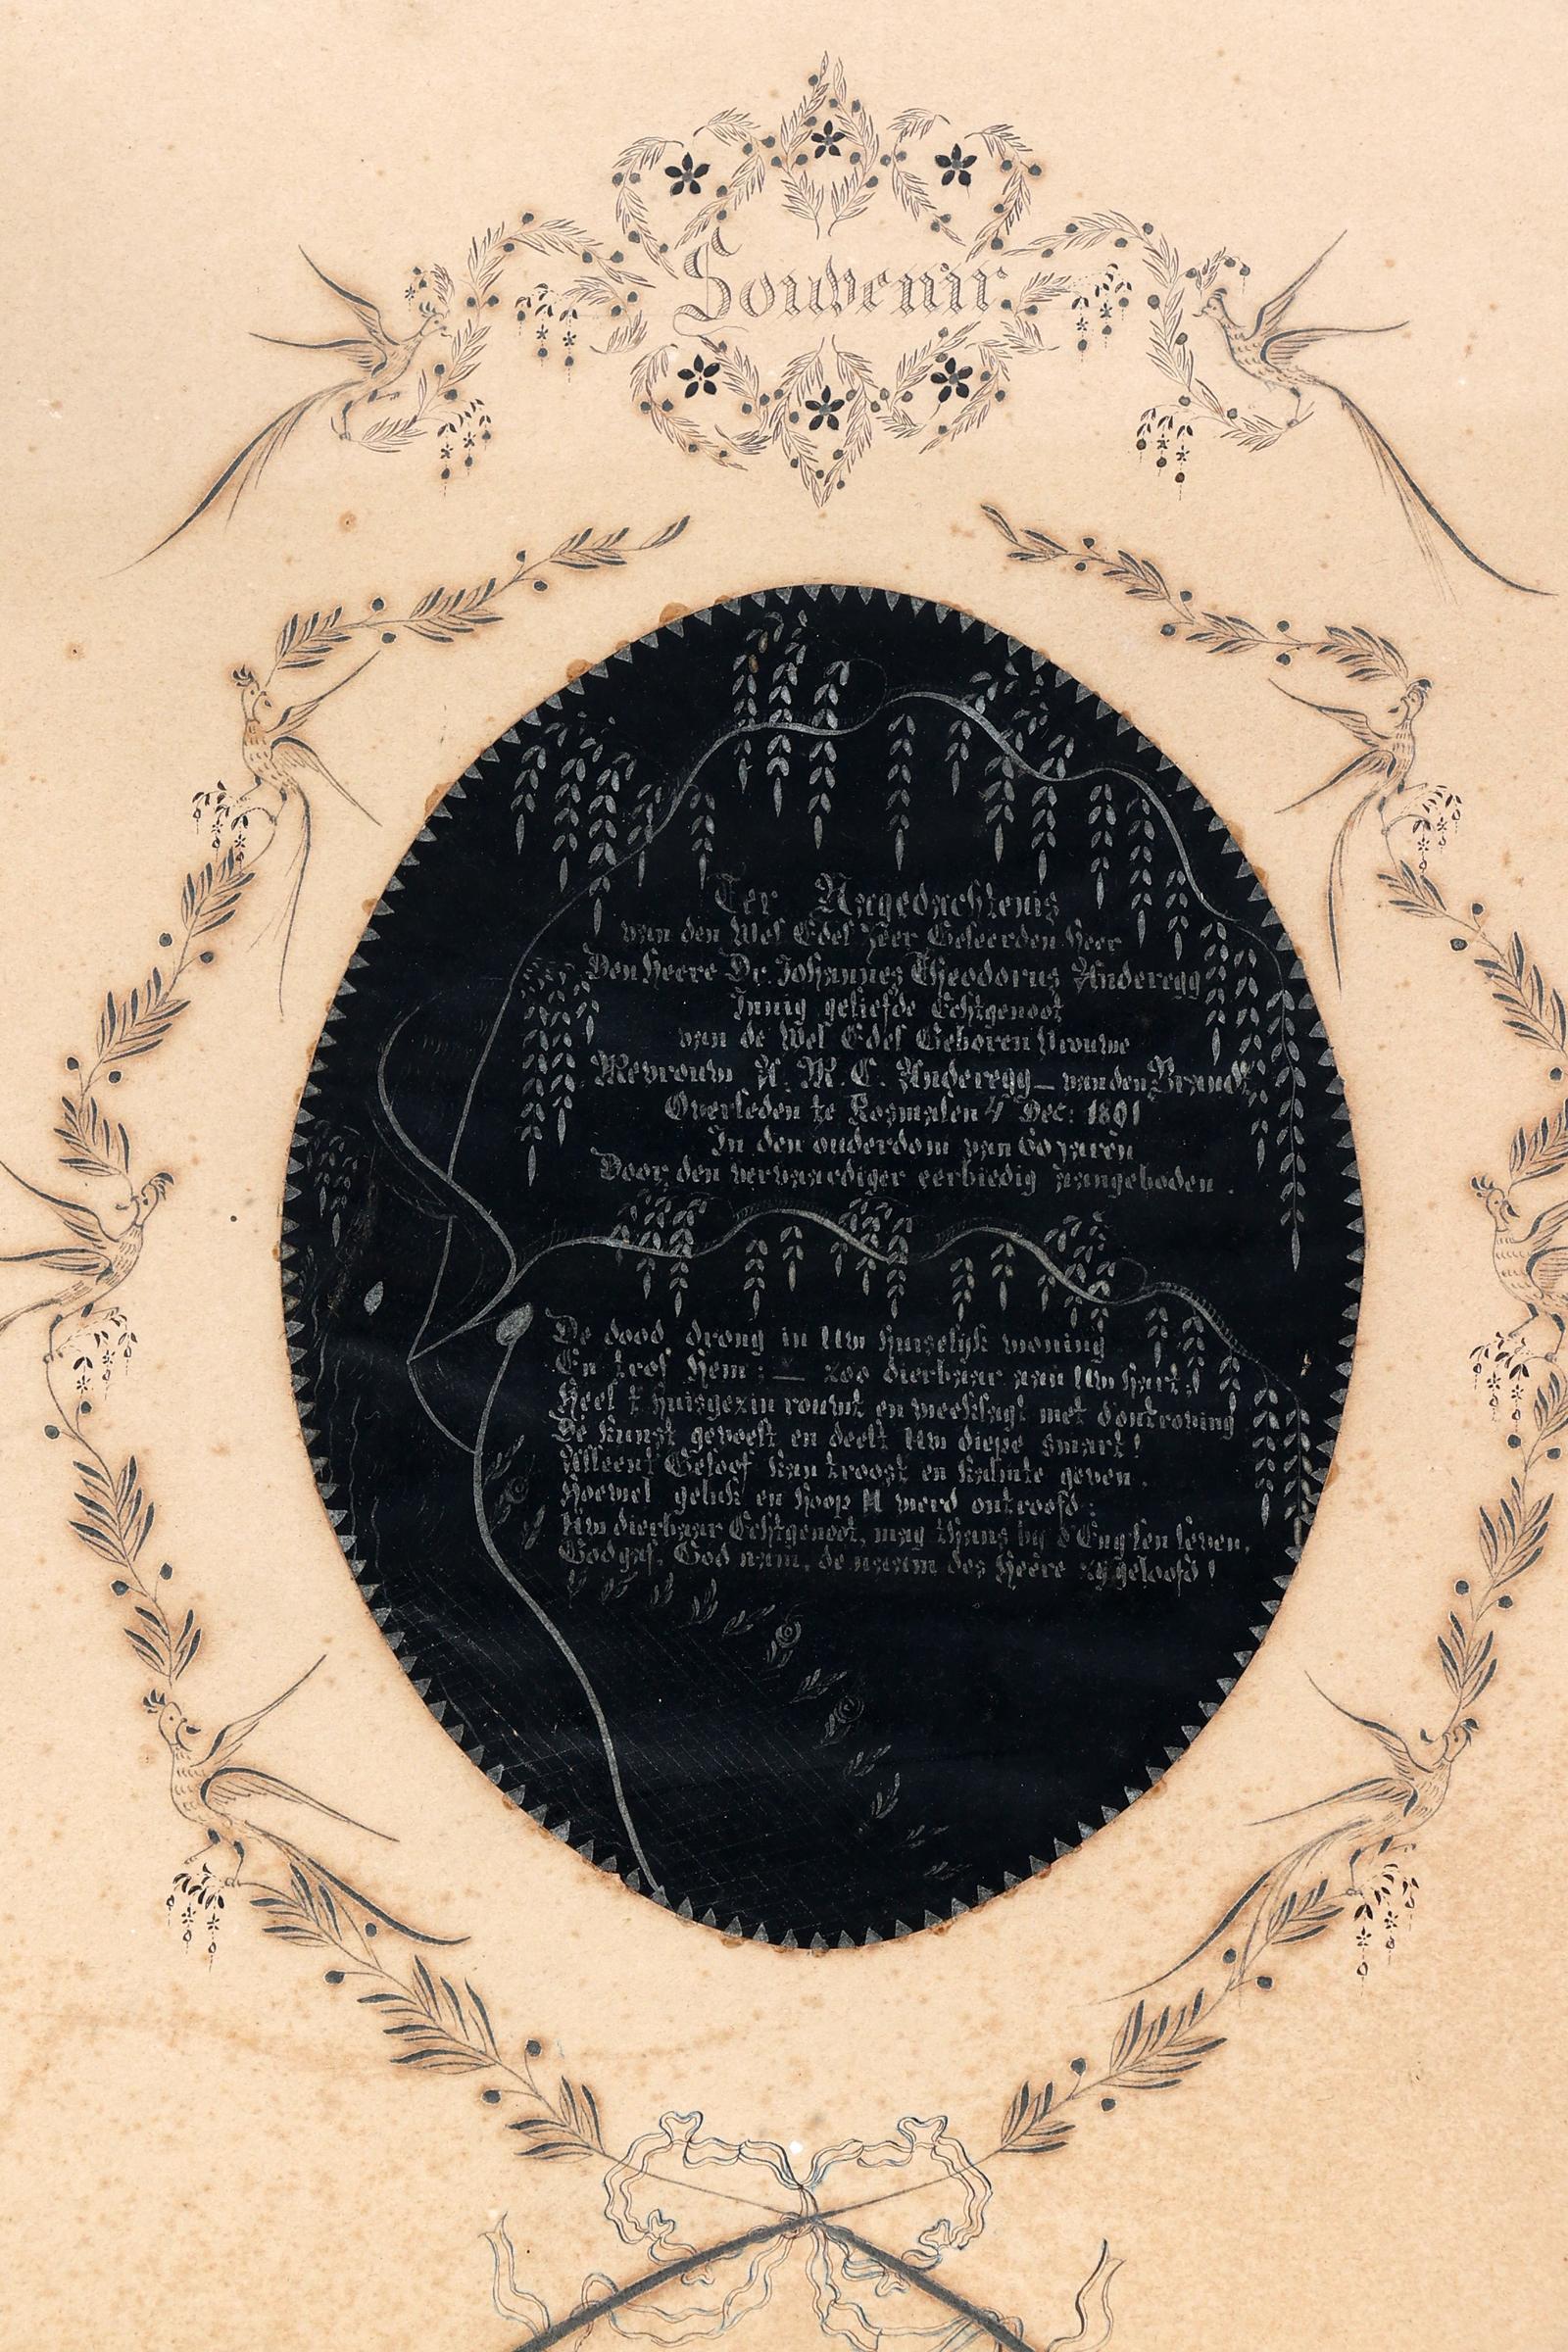 Souvenir
Ter Nagedachtenis
van den Wel Edel Zeer Geleerden Heer
Den Heere Dr. Johannes Theodorus Anderegg
Innig geliefde Echtgenoot
van de Wel Edel Geboren Vrouwe
Mevrouw A. M. C. Anderegg – van den Brandt
Overleden te Rosmalen 4 Dec: 1891
In den ouderdom van 60 jaren
Door den vervaardiger eerbiedig aangeboden.
De dood drong in Uw huiselijk woning
En trof Hem; — zoo dierbaar aan Uw hart!
Heel 't huisgezin rouwt en weeklagt met d'ontroving
De kunst gevoelt en deelt Uw diepe smart!
Alleen 't Geloof kan troost en kalmte geven.
Hoewel geluk en hoop U werd ontroofd:
Uw dierbaar Echtgenoot, mag thans bij d'Eng'len leven,
God gaf, God nam, de naam des Heere zij geloofd!